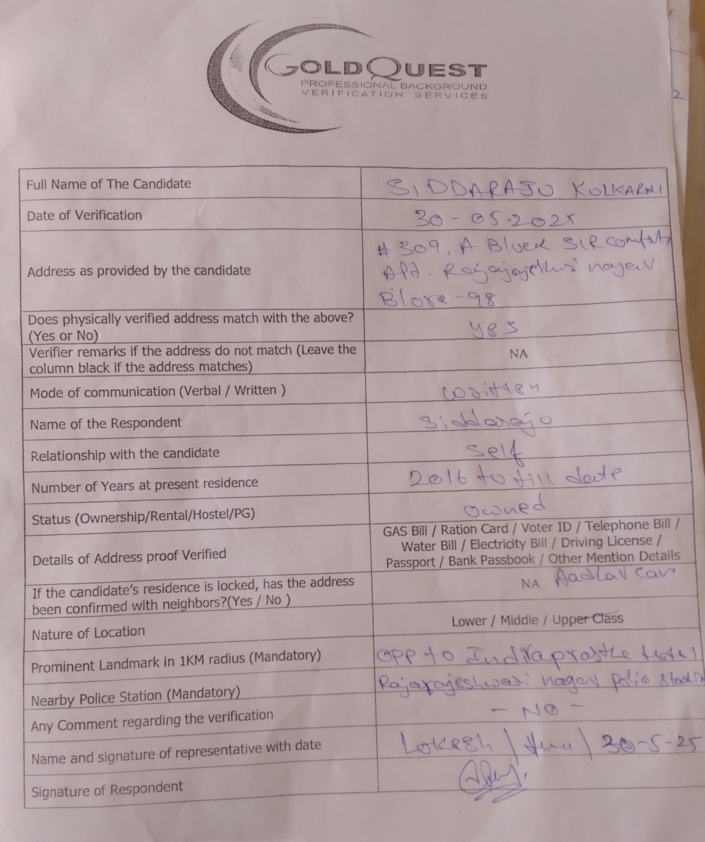 GOLDQUEST
PROFESSIONAL BACKGROUND
VERIFICATION SERVICES
2
Full Name of The Candidate
SIDDARAJU KOLKARNI
Date of Verification
30-05-2025
Address as provided by the candidate
# 309, A Block SLR comforts
Apt. Rajajajeshwsi nagar
B'lore-98
Does physically verified address match with the above?
(Yes or No)
yes
Verifier remarks if the address do not match (Leave the
column black if the address matches)
NA
Mode of communication (Verbal / Written )
written
Name of the Respondent
Siddaraju
Relationship with the candidate
self
Number of Years at present residence
2016 to till date
Status (Ownership/Rental/Hostel/PG)
owned
Details of Address proof Verified
GAS Bill / Ration Card / Voter ID / Telephone Bill /
Water Bill / Electricity Bill / Driving License /
Passport / Bank Passbook / Other Mention Details
If the candidate's residence is locked, has the address
been confirmed with neighbors?(Yes / No )
NA Aadhar Car
Nature of Location
Lower / Middle / Upper Class
Prominent Landmark in 1KM radius (Mandatory)
OPP to Indraprastha hotel
Nearby Police Station (Mandatory)
Rajarajeshwari nagar police station
Any Comment regarding the verification
- NO -
Name and signature of representative with date
Lokesh / / 30-5-25
Signature of Respondent